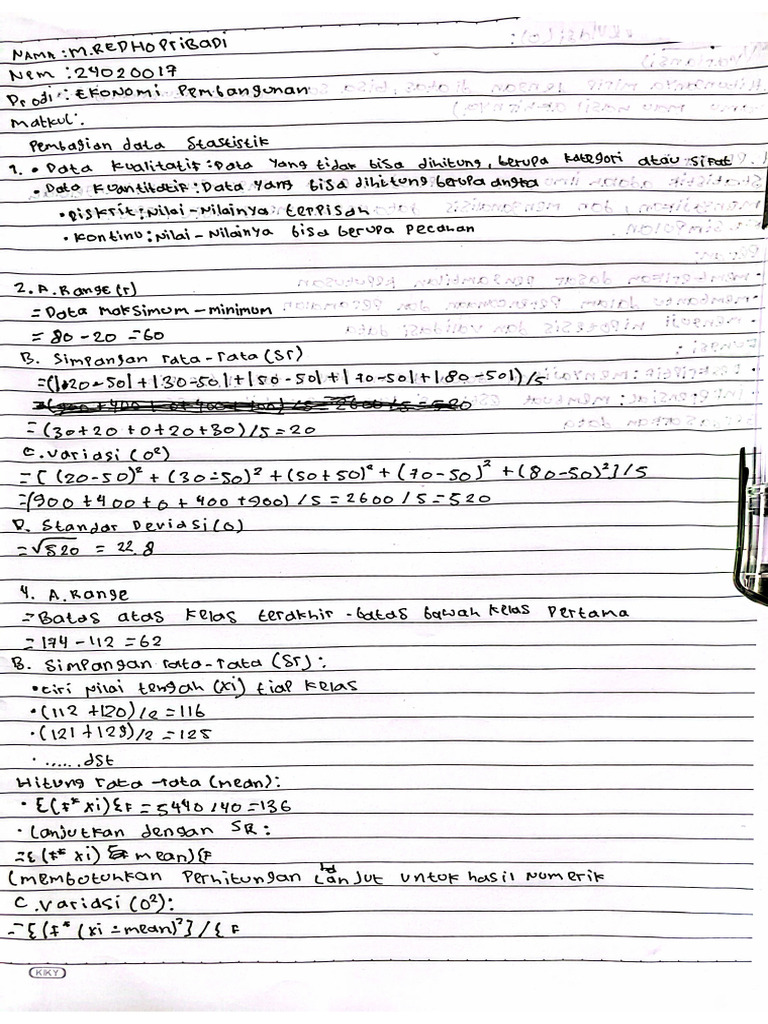 NAMA : M.REDHO PRIBADI
Nem : 24020017
Prodi : EKONOMI Pembangunan
Matkul :
Pembagian data Stastistik
1. • Data Kualitatif : Data Yang tidak bisa dihitung, berupa kategori atau sifat
• Data Kuantitatif : Data yang bisa dihitung berupa angka
• Diskrit : Nilai-Nilainya terpisah
• Kontinu : Nilai-Nilainya bisa berupa pecahan
2. A. Range (r)
= Data Maksimum - minimum
= 80 - 20 = 60
B. Simpangan rata-rata (Sr)
= (|20-50| + |30-50| + |50-50| + |70-50| + |80-50|) / 5
= (30+20+0+20+30) / 5 = 20
C. Variasi (O²)
= [ (20-50)² + (30-50)² + (50+50)² + (70-50)² + (80-50)²] / 5
= (900 + 400 + 0 + 400 + 900) / 5 = 2600 / 5 = 520
D. Standar Deviasi (O)
= √520 = 22.8
4. A. Range
= Batas atas Kelas terakhir - batas bawah Kelas Pertama
= 174 - 112 = 62
B. Simpangan rata-rata (Sr) :
• Ciri Nilai tengah (xi) tiap Kelas
• (112 + 120) / 2 = 116
• (121 + 129) / 2 = 125
• ...... dst
Hitung rata-rata (mean) :
• Σ(f* xi) Σf = 5440 / 40 = 136
• Lanjutkan dengan SR :
= Σ (f* xi) mean) Σf
(membutuhkan Perhitungan Lanjut untuk hasil Numerik
C. Variasi (O²) :
= Σ (f* (xi - mean)²] / Σ f
KIKY